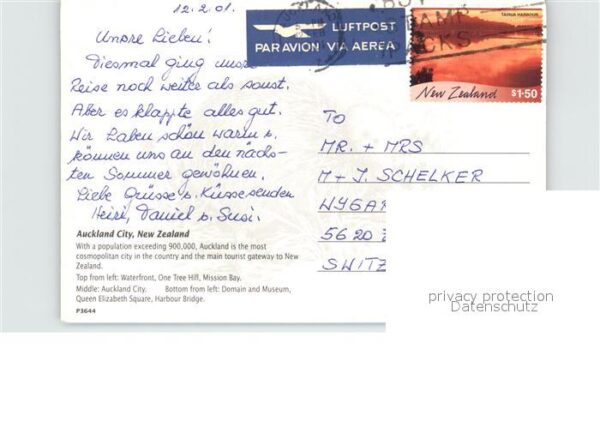 12.2.01.
Unsre Lieben!
Diesmal ging unsre
Reise noch weiter als sonst.
Aber es klappte alles gut.
Wir haben schön warm u.
können uns an den näch-
sten Sommer gewöhnen.
Liebe Grüsse u. Küsse senden
Heiri, Daniel u. Susi.
LUFTPOST
PAR AVION VIA AEREA
STAMP
PACKS
TAIRUA HARBOUR
New Zealand
$1·50
TO
MR. + MRS
M + J. SCHELKER
WYGAR
5620
SWITZ
Auckland City, New Zealand
With a population exceeding 900,000, Auckland is the most
cosmopolitan city in the country and the main tourist gateway to New
Zealand.
Top from left: Waterfront, One Tree Hill, Mission Bay.
Middle: Auckland City. Bottom from left: Domain and Museum,
Queen Elizabeth Square, Harbour Bridge.
P3644
privacy protection
Datenschutz